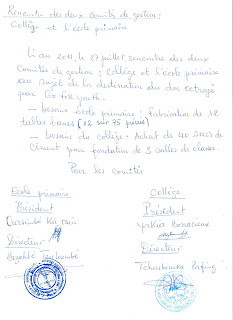 Rencontre des deux Comités de gestion :
Collège et l'école primaire
L'an 2011, le 27 juillet rencontre des deux
Comités de gestion : Collège et l'école primaire
au sujet de la destination du don octroyé
par Go fire youth.
— besoins école primaire : Fabrication de 12
tables bancs (12 sur 95 prévus)
— besoins du collège : Achat de 40 sacs de
ciment pour fondation de 3 salles de classes.
Pour les Comités
Ecole primaire
Collège
Président
Président
Directeur
Directeur